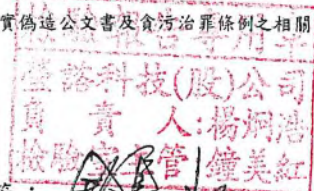 實偽造公文書及貪污治罪條例之相關
科技(股)公司
負責人:楊炯浩
檢驗室主管 鐘美紅